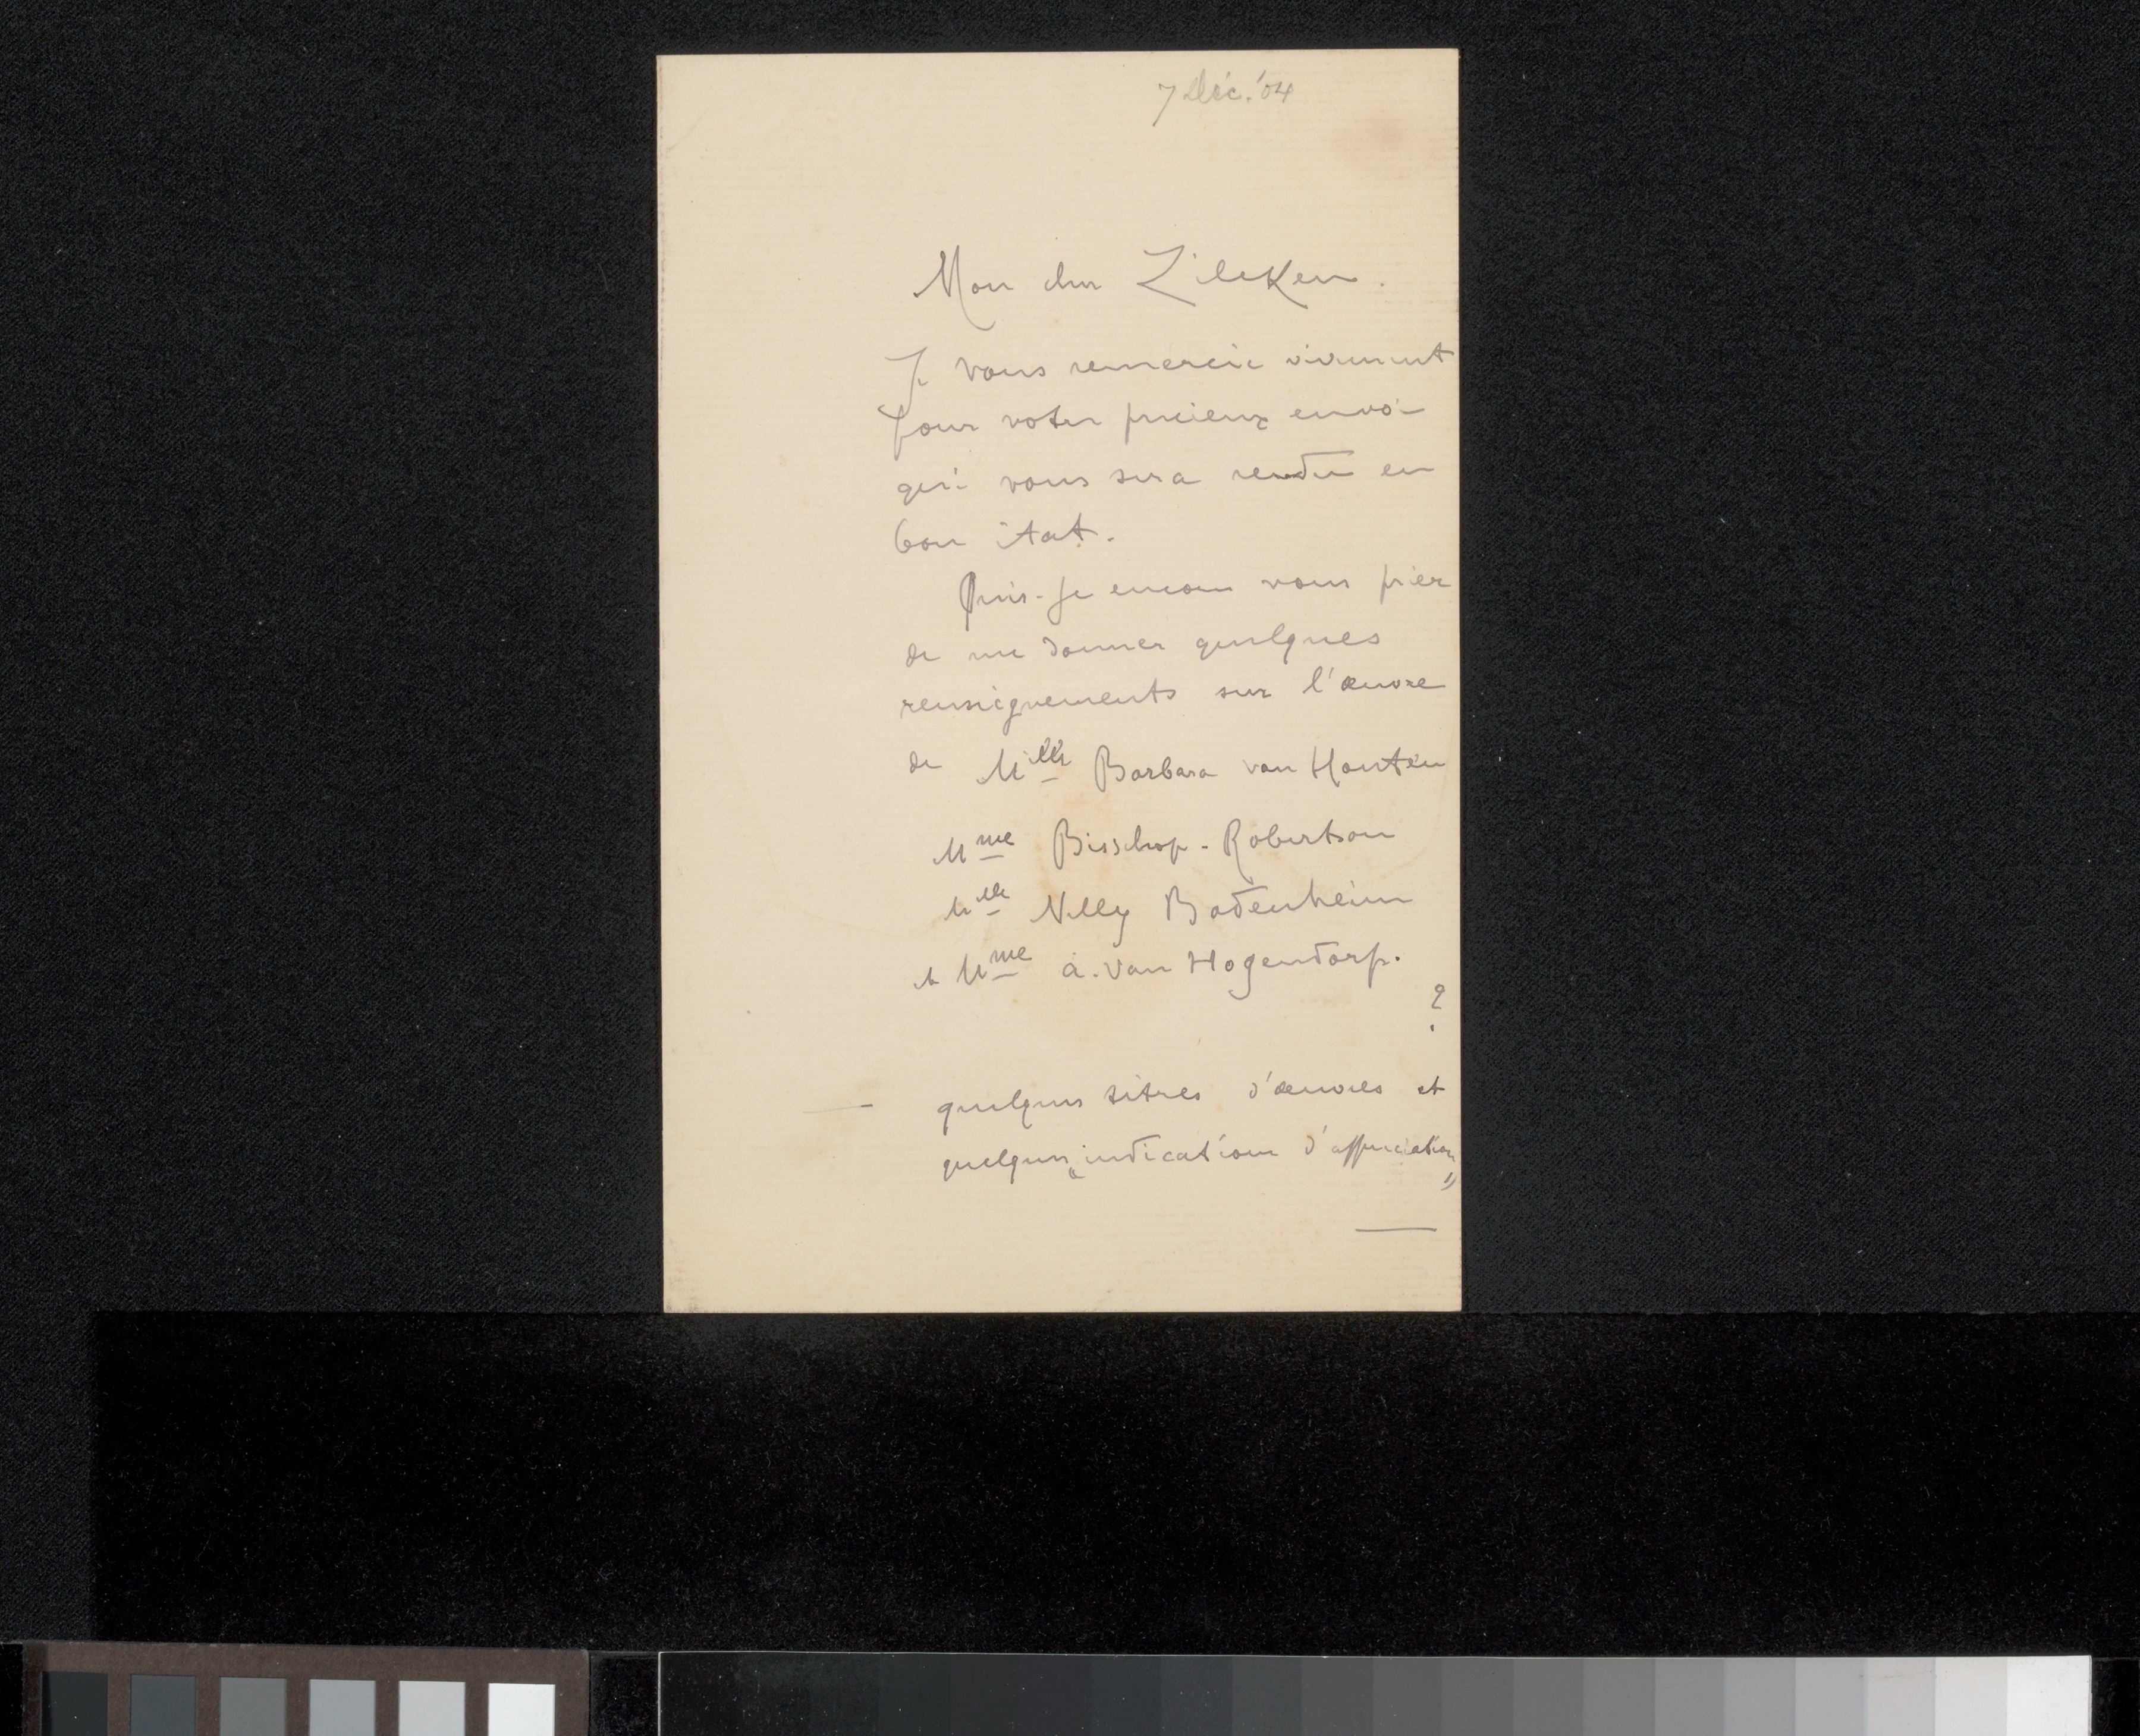 7 Déc. '04
Mon cher Zilcken.
Je vous remercie vivement
pour votre précieux envoi
qui vous sera rendu en
bon état.
Puis-je encore vous prier
de me donner quelques
renseignements sur l'œuvre
de Mlle Barbara van Houten
Mme Bisschop-Robertson
Mlle Nelly Bodenheim
et Mme A. van Hogendorp.
?
— quelques titres d'œuvres et
quelques indications d'appréciation